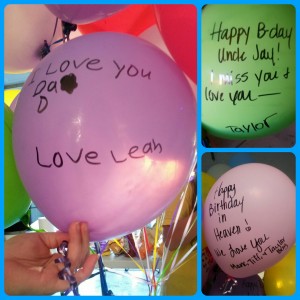 I Love you
Da
D
Love Leah
Happy B-day
Uncle Jay!
i miss you &
love you —
Taylor
Happy
Birthday
in
Heaven!
We Love You
Mom, Tilli, Taylor